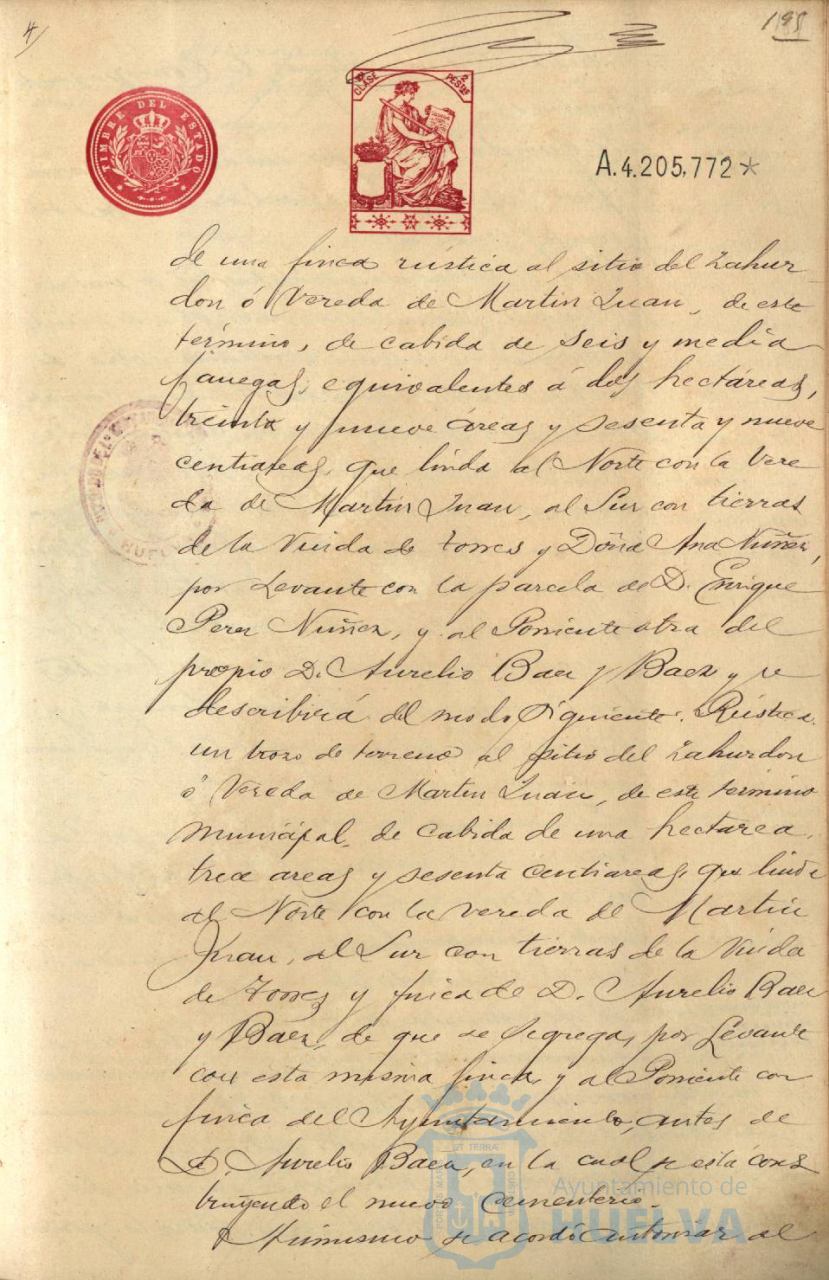 4
198
CLASE 9ª
PESTAS 2
TIMBRE DEL ESTADO
A.4.205,772*
de una finca rústica al sitio del Zahur-
don ó Vereda de Martin Juan, de este
término, de cabida de seis y media
fanegas, equivalentes á dos hectáreas,
treinta y nueve áreas y sesenta y nueve
centiareas, que linda al Norte con la Vere
da de Martin Juan, al Sur con tierras
de la Viuda de Torres y Doña Ana Nuñez,
por Levante con la parcela de D. Enrique
Perez Nuñez, y al Poniente otra del
propio D. Aurelio Baez y Baez y se
describirá del modo siguiente. Rústica.
un trozo de terreno al sitio del Zahurdon
ó Vereda de Martin Juan, de este término
municipal, de cabida de una hectarea,
trece areas y sesenta centiareas, que linda
al Norte con la vereda de Martin
Juan, al Sur con tierras de la Viuda
de Torres y finca de D. Aurelio Baez
y Baez, de que se segrega, por Levante
con esta misma finca, y al Poniente con
finca del Ayuntamiento, antes de
D. Aurelio Baez, en la cual se está cons
truyendo el nuevo cementerio.
Asimismo se acordó autorizar al
HUELVA
Ayuntamiento de
HUELVA